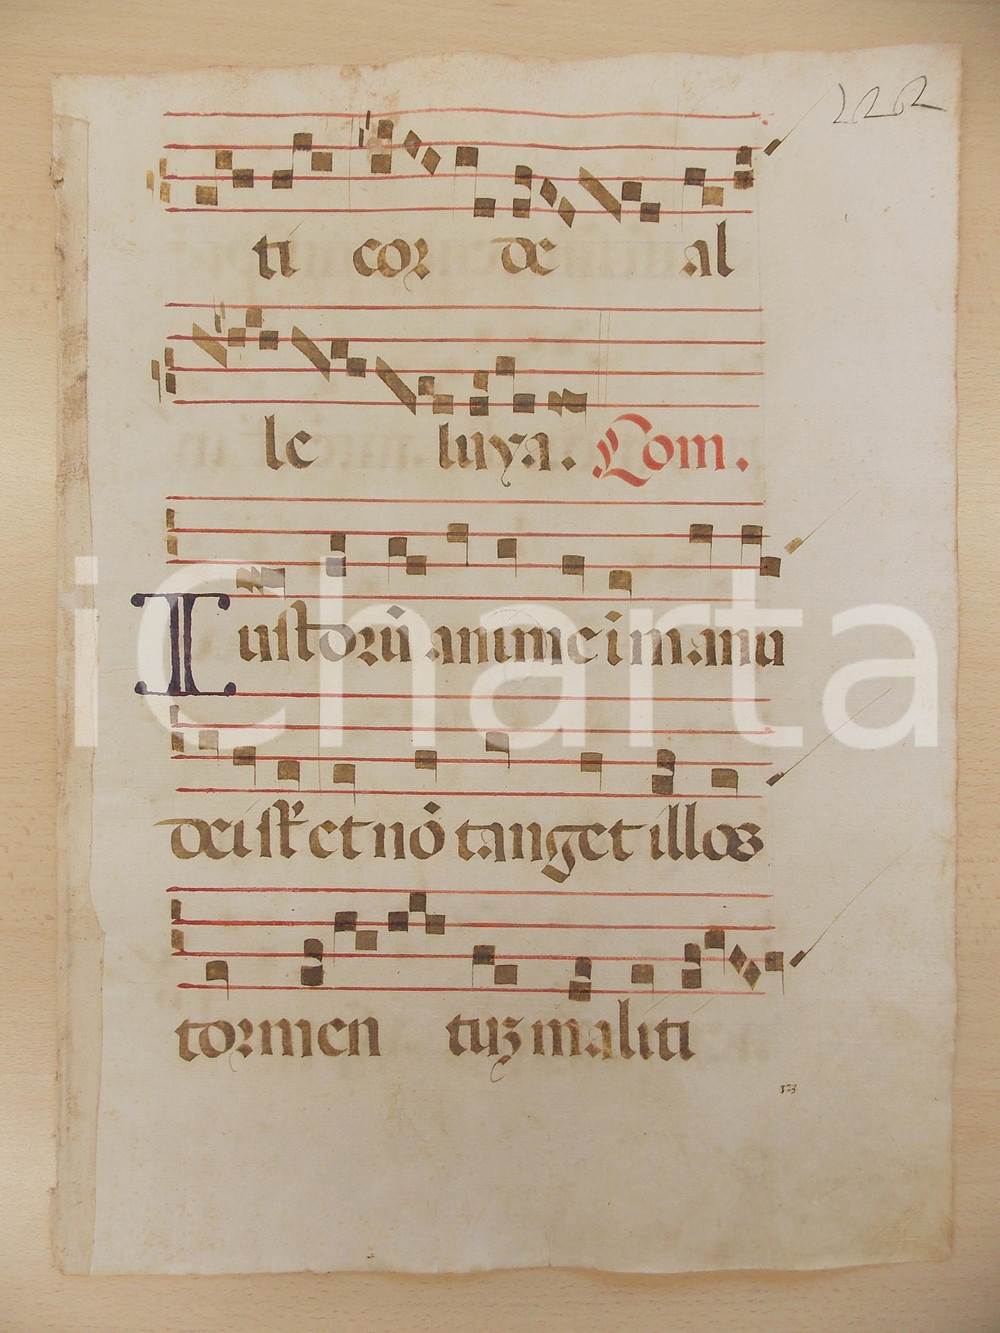 222
ti cor de al
le luya. Com.
Iustorū anime i manu
dei st̄ et nō tanget illos
tormentuʒ maliti
123
iCharta